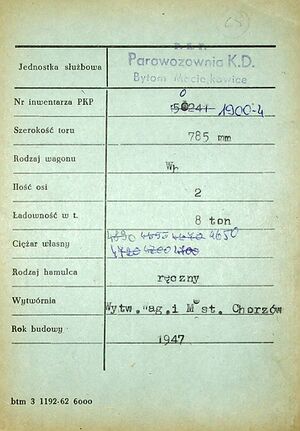 P.K.P.
Jednostka służbowa Parowozownia K.D.
Bytom Maciejkowice
Nr inwentarza PKP 50241 1900-4
Szerokość toru 785 mm
Rodzaj wagonu Wh
Ilość osi 2
Ładowność w t. 8 ton
4650
Ciężar własny
Rodzaj hamulca ręczny
Wytwórnia Wytw. Wag. i Most. Chorzów
Rok budowy 1947
btm 3 1192-62 6000